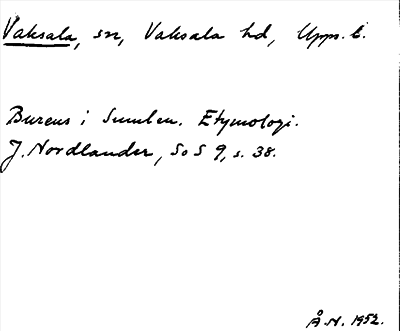 Vaksala, sn, Vaksala hd, Upps. l.
Bureus i Sumlen. Etymologi.
J. Nordlander, SoS 9, s. 38.
Å. N. 1952.